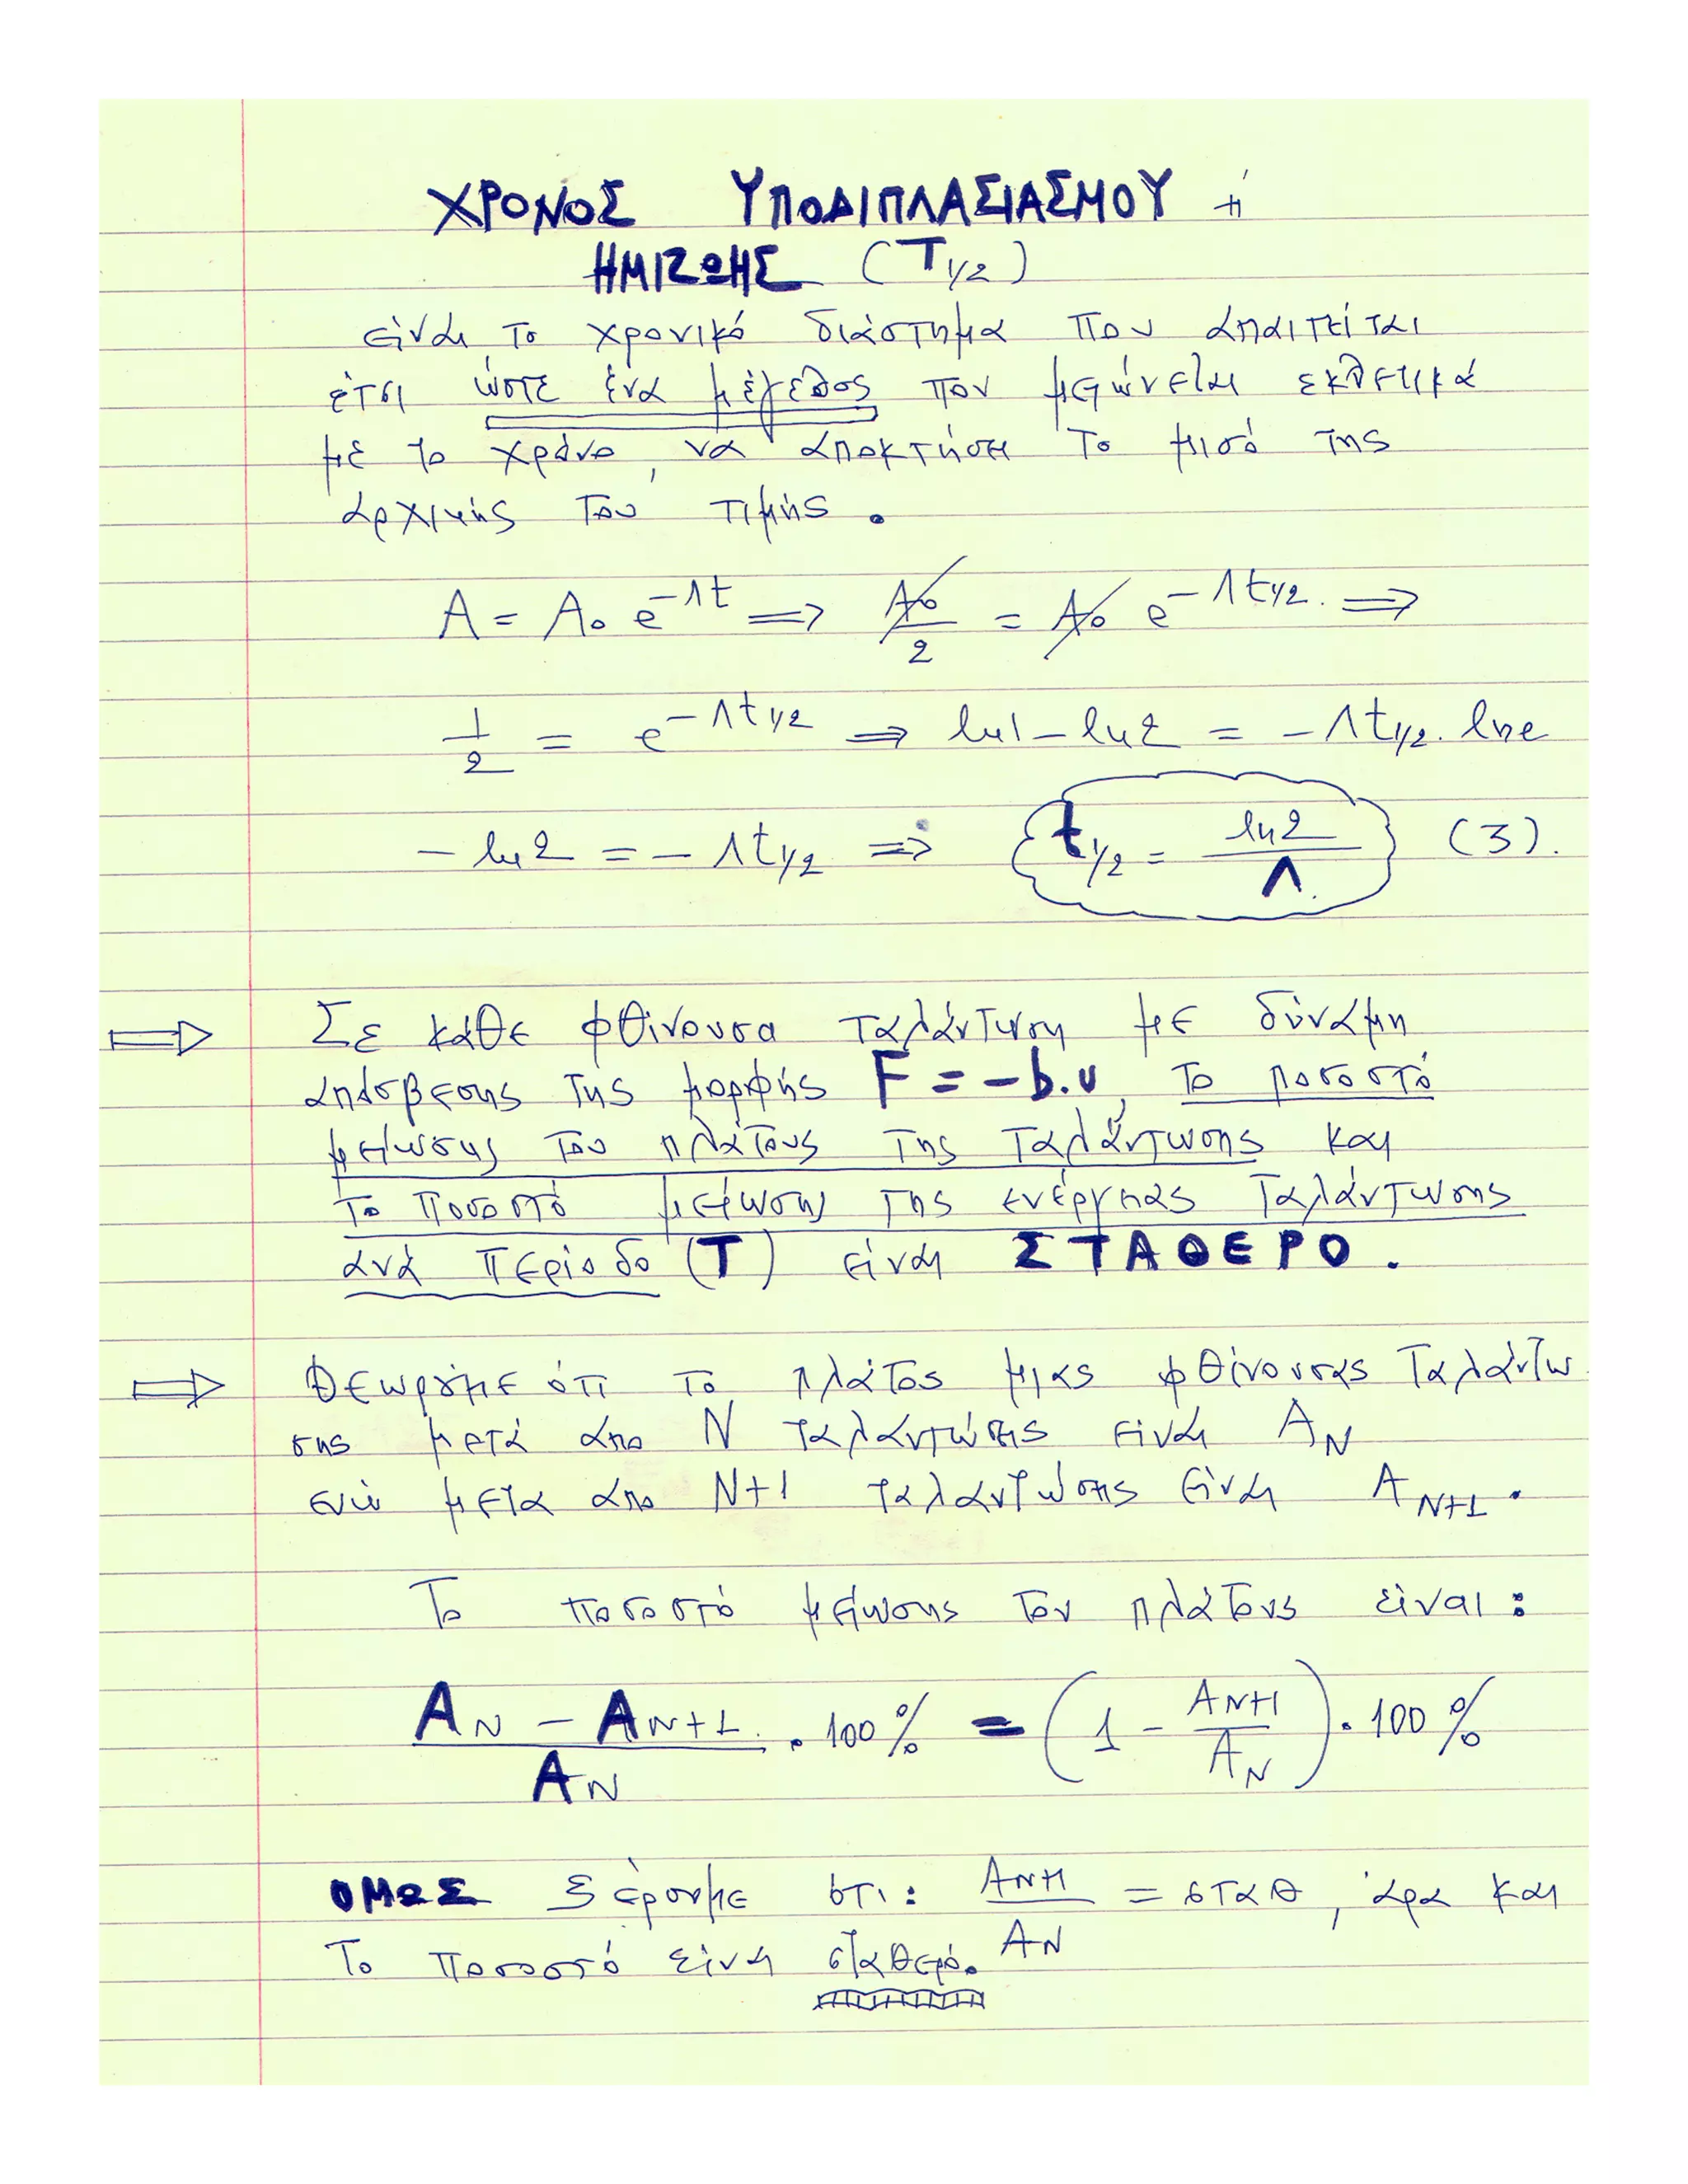 ΧΡΟΝΟΣ ΥΠΟΔΙΠΛΑΣΙΑΣΜΟΥ ή
ΗΜΙΖΩΗΣ (T1/2)
είναι το χρονικό διάστημα που απαιτείται
έτσι ώστε ένα μέγεθος που μειώνεται εκθετικά
με το χρόνο, να αποκτήσει το μισό της
αρχικής του τιμής.
A = A₀ e^{-Λt} ⟹ A₀/2 = A₀ e^{-Λt1/2} ⟹
1/2 = e^{-Λt1/2} ⟹ ln1 - ln2 = -Λt1/2 · lne
- ln2 = - Λt1/2 ⟹ t1/2 = ln2/Λ (3).
⟹ Σε κάθε φθίνουσα ταλάντωση με δύναμη
απόσβεσης της μορφής F = -b.υ, το ποσοστό
μείωσης του πλάτους της ταλάντωσης και
το ποσοστό μείωσης της ενέργειας ταλάντωσης
ανά περίοδο (T) είναι ΣΤΑΘΕΡΟ.
⟹ Θεωρούμε ότι το πλάτος μιας φθίνουσας ταλάντω
σης μετά απο N ταλαντώσεις είναι A_N
ενώ μετα απο N+1 ταλαντώσεις είναι A_{N+1}.
Το ποσοστό μείωσης του πλάτους είναι:
(A_N - A_{N+1})/A_N · 100% = (1 - A_{N+1}/A_N) · 100%
ΟΜΩΣ ξέρουμε οτι: A_{N+1}/A_N = σταθ, άρα και
το ποσοστό είναι σταθερό.